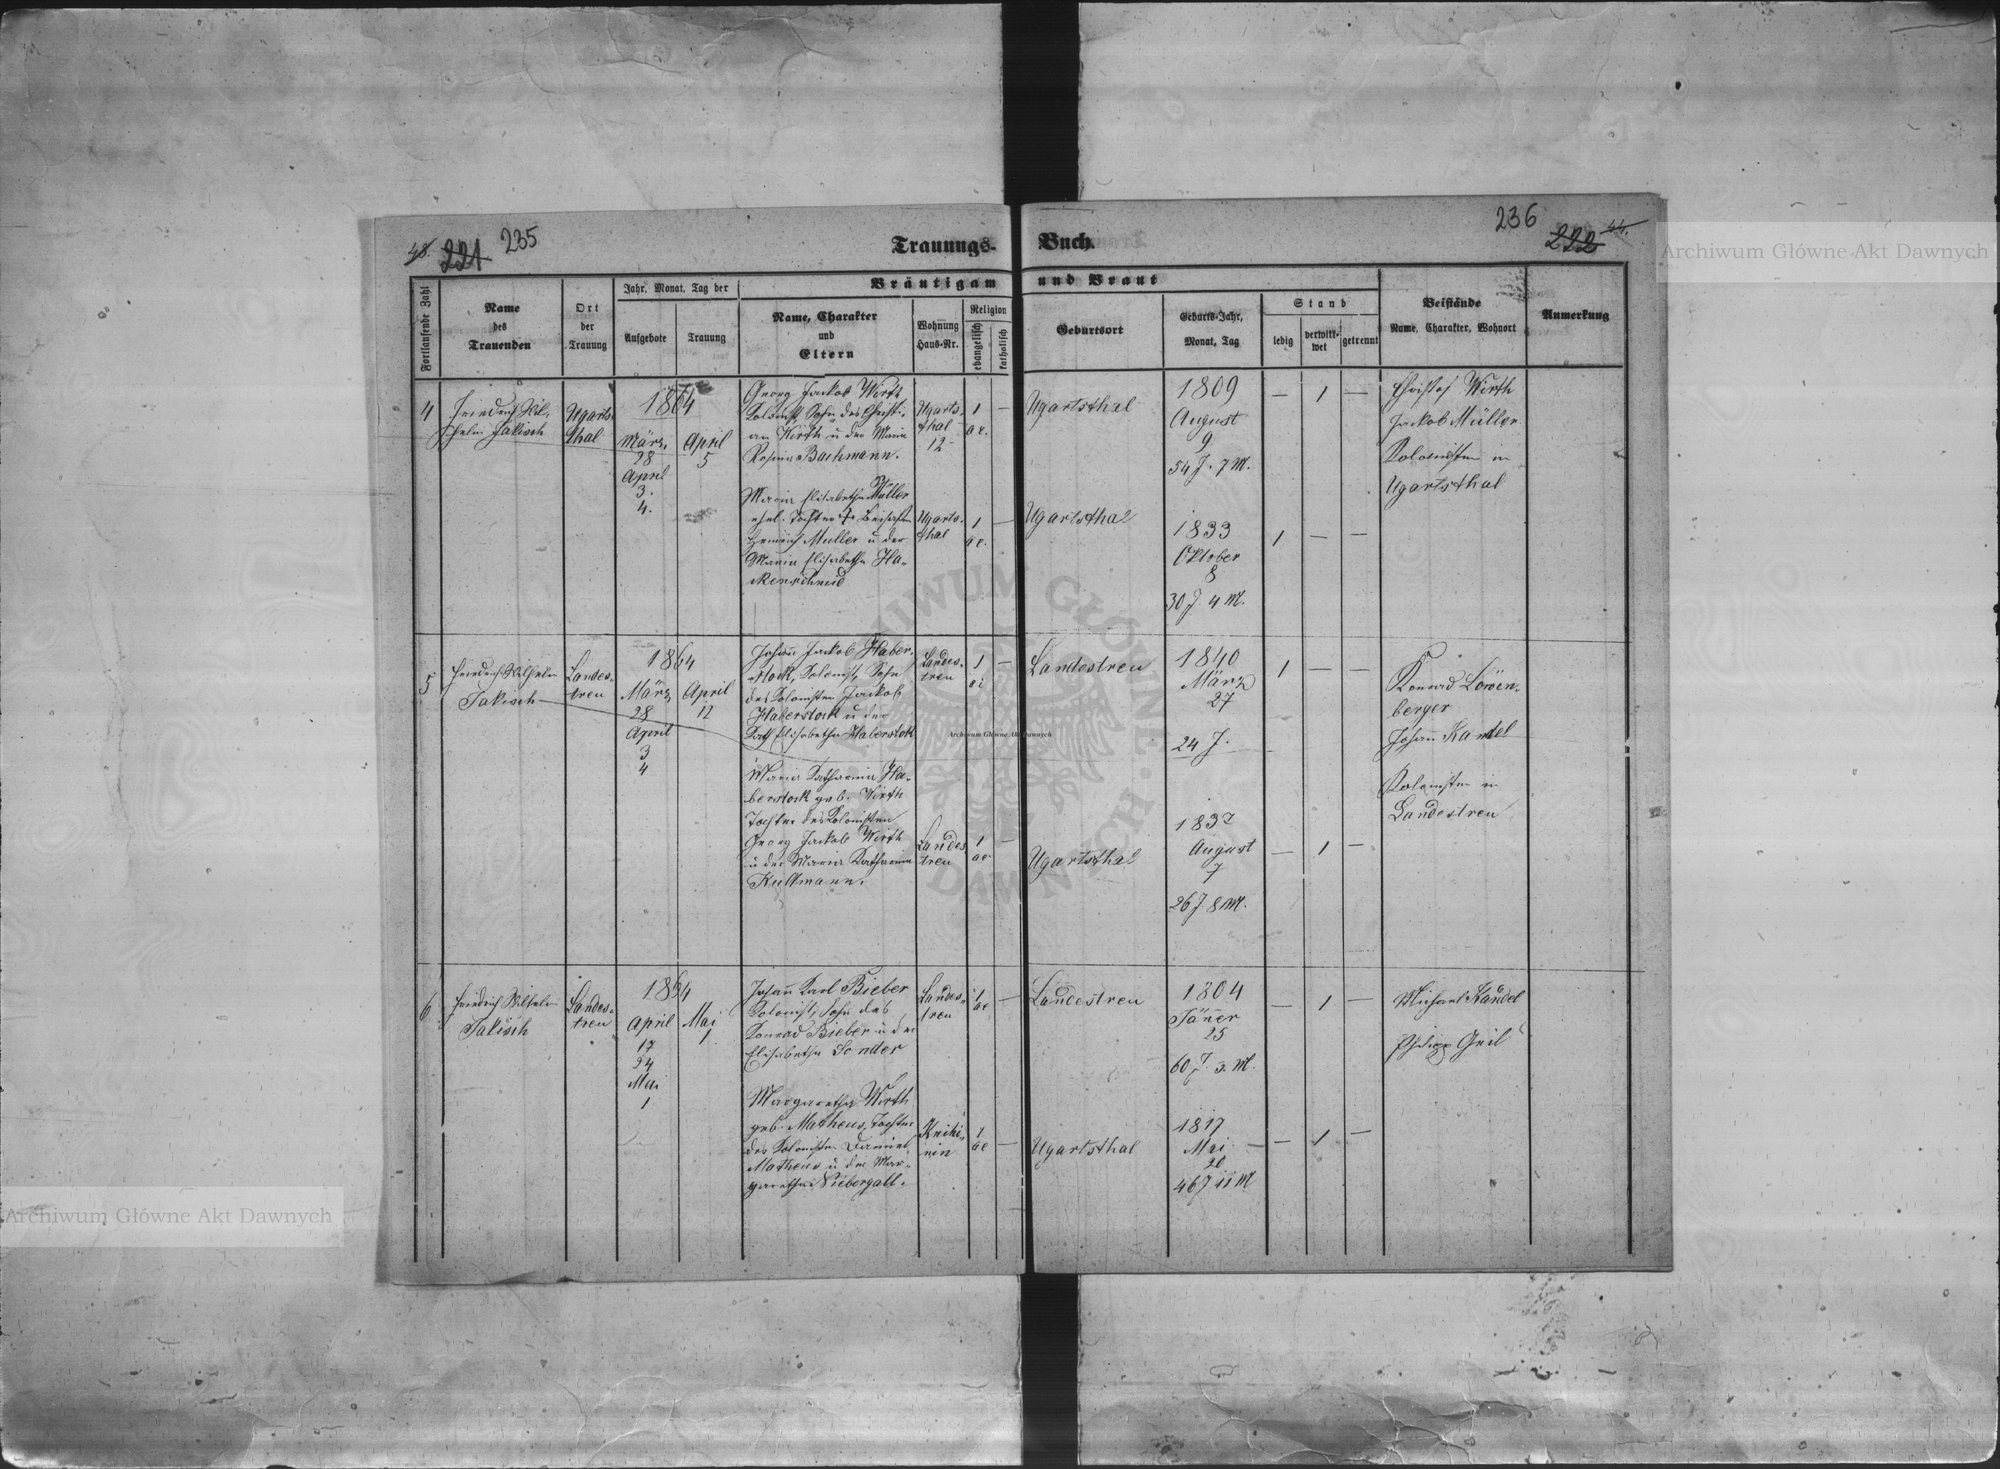 48. 221 235
Trauungs-
Buch.
236 222 44.
Fortlaufende Zahl
Name
des
Trauenden
Ort
der
Trauung
Jahr, Monat, Tag der
Aufgebote
Trauung
Bräutigam
Name, Charakter
und
Eltern
Wohnung
Haus-Nr.
Religion
evangelisch
katholisch
und Braut
Geburtsort
Geburts-Jahr,
Monat, Tag
Stand
ledig
verwitt-
wet
getrennt
Beistände
Name, Charakter, Wohnort
Anmerkung
4
Friedrich Wil-
helm Jakisch
Ugarts
thal
1864
März
28
April
3.
4.
April
5
Georg Jackob Wirth
Kolonist, Sohn des Christi-
an Wirth u der Maria
Rosina Bachmann.
Ugarts-
thal
12
1
ae.
—
Ugartsthal
1809
August
9
54 J. 7 M.
— 1 —
Christof Wirth
Jackob Müller
Kolonisten in
Ugartsthal
Maria Elisabetha Müller
ehel. Tochter
Heinrich Muller u der
Maria Elisabetha Ha-
ckenschmid
Ugarts-
thal
1
ae.
—
Ugartsthal
1833
Oktober
8
30 J. 4 M.
1 — —
5
Friedrich Wilhelm
Jakisch
Landes-
treu
1864
März
28
April
3
4
April
12
Johann Jackob Haber-
stock, Kolonist, Sohn
des Kolonisten Jackob
Haberstock u der
Kath Elisabetha Haberstok
Landes-
treu
1
—
Landestreu
1840
März
27
24 J.
1 — —
Konrad Löwen-
berger
Johann Kandel
Kolonisten in
Landestreu
Maria Katharina Ha-
berstock geb. Wirth
Tochter des Kolonisten
Georg Jackob Wirth
u der Maria Katharina
Kullmann.
Landes
treu
1
ae
—
Ugartsthal
1837
August
7
26 J. 8 M.
— 1 —
6
Friedrich Wilhelm
Jakisch
Landes-
treu
1864
April
17
24
Mai
1
Mai
1
Johann Karl Bieber
Kolonist, Sohn des
Konrad Bieber u der
Elisabetha Sonder
Landes-
treu
1
ae
—
Landestreu
1804
Jäner
25
60 J. 3. M.
— 1 —
Michael Kandel
Philipp Greil
Margaretha Wirth
geb. Matheus, Tochter
des Kolonisten Daniel
Matheus u der Mar-
garetha Viebergall.
Knihi-
nin
1
ae
—
Ugartsthal
1817
Mai
20
46 J 11 M
— 1 —
Archiwum Główne Akt Dawnych
Archiwum Główne Akt Dawnych
Archiwum Główne Akt Dawnych